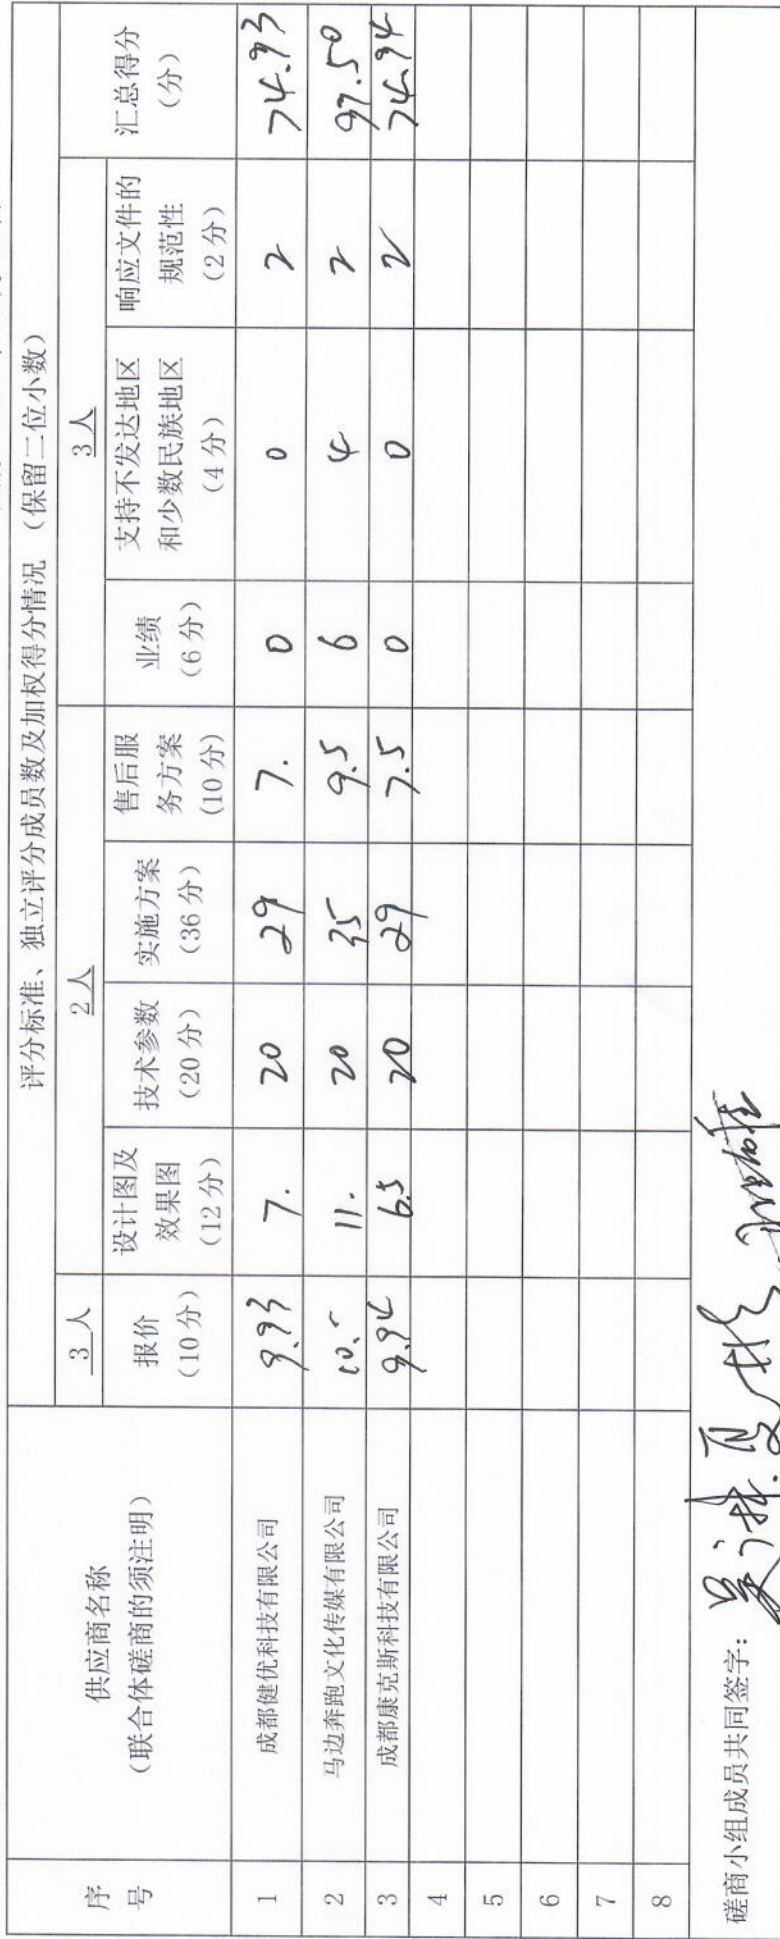 评分标准、独立评分成员数及加权得分情况（保留二位小数）
序号
供应商名称
（联合体磋商的须注明）
3 人
2 人
3 人
汇总得分
（分）
报价
（10 分）
设计图及
效果图
（12 分）
技术参数
（20 分）
实施方案
（36 分）
售后服
务方案
（10 分）
业绩
（6 分）
支持不发达地区
和少数民族地区
（4 分）
响应文件的
规范性
（2 分）
1 成都健优科技有限公司 9.93 7. 20 29 7. 0 0 2 74.93
2 马边奔跑文化传媒有限公司 10.- 11. 20 35 9.5 6 4 2 97.50
3 成都康克斯科技有限公司 9.94 6.5 20 29 7.5 0 0 2 74.94
4
5
6
7
8
磋商小组成员共同签字：